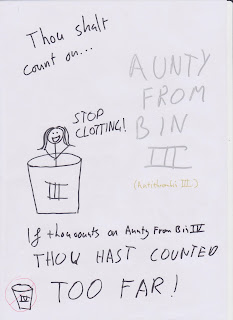 Thou shalt
count on...
AUNTY
FROM
BIN
III
(Antithrombin III)
STOP
CLOTTING!
III
If thou counts on Aunty From Bin IV
THOU HAST COUNTED
TOO FAR!
IV